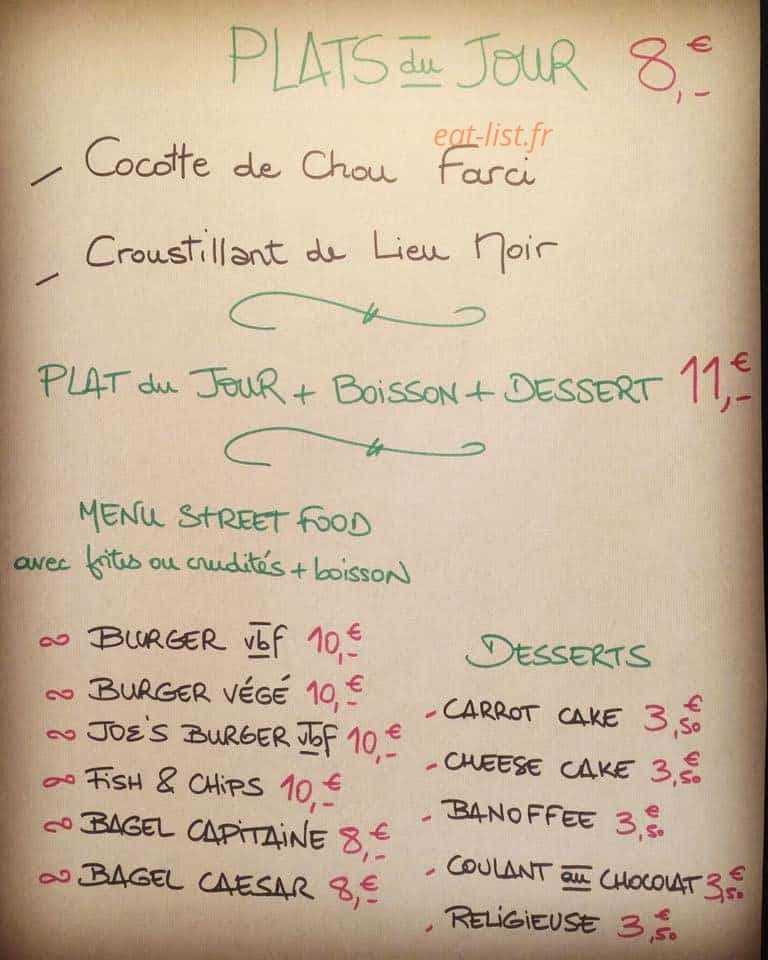 PLATS du JOUR 8,-€
eat-list.fr
- Cocotte de Chou Farci
- Croustillant de Lieu Noir
PLAT du JOUR + BOISSON + DESSERT 11,-€
MENU STREET FOOD
avec frites ou crudités + boisson
∞ BURGER vbf 10,-€
∞ BURGER VÉGÉ 10,-€
∞ JOE'S BURGER vbf 10,-€
∞ FISH & CHIPS 10,-€
∞ BAGEL CAPITAINE 8,-€
∞ BAGEL CAESAR 8,-€
DESSERTS
- CARROT CAKE 3,50€
- CHEESE CAKE 3,50€
- BANOFFEE 3,50€
- COULANT au CHOCOLAT 3,50€
- RELIGIEUSE 3,50€